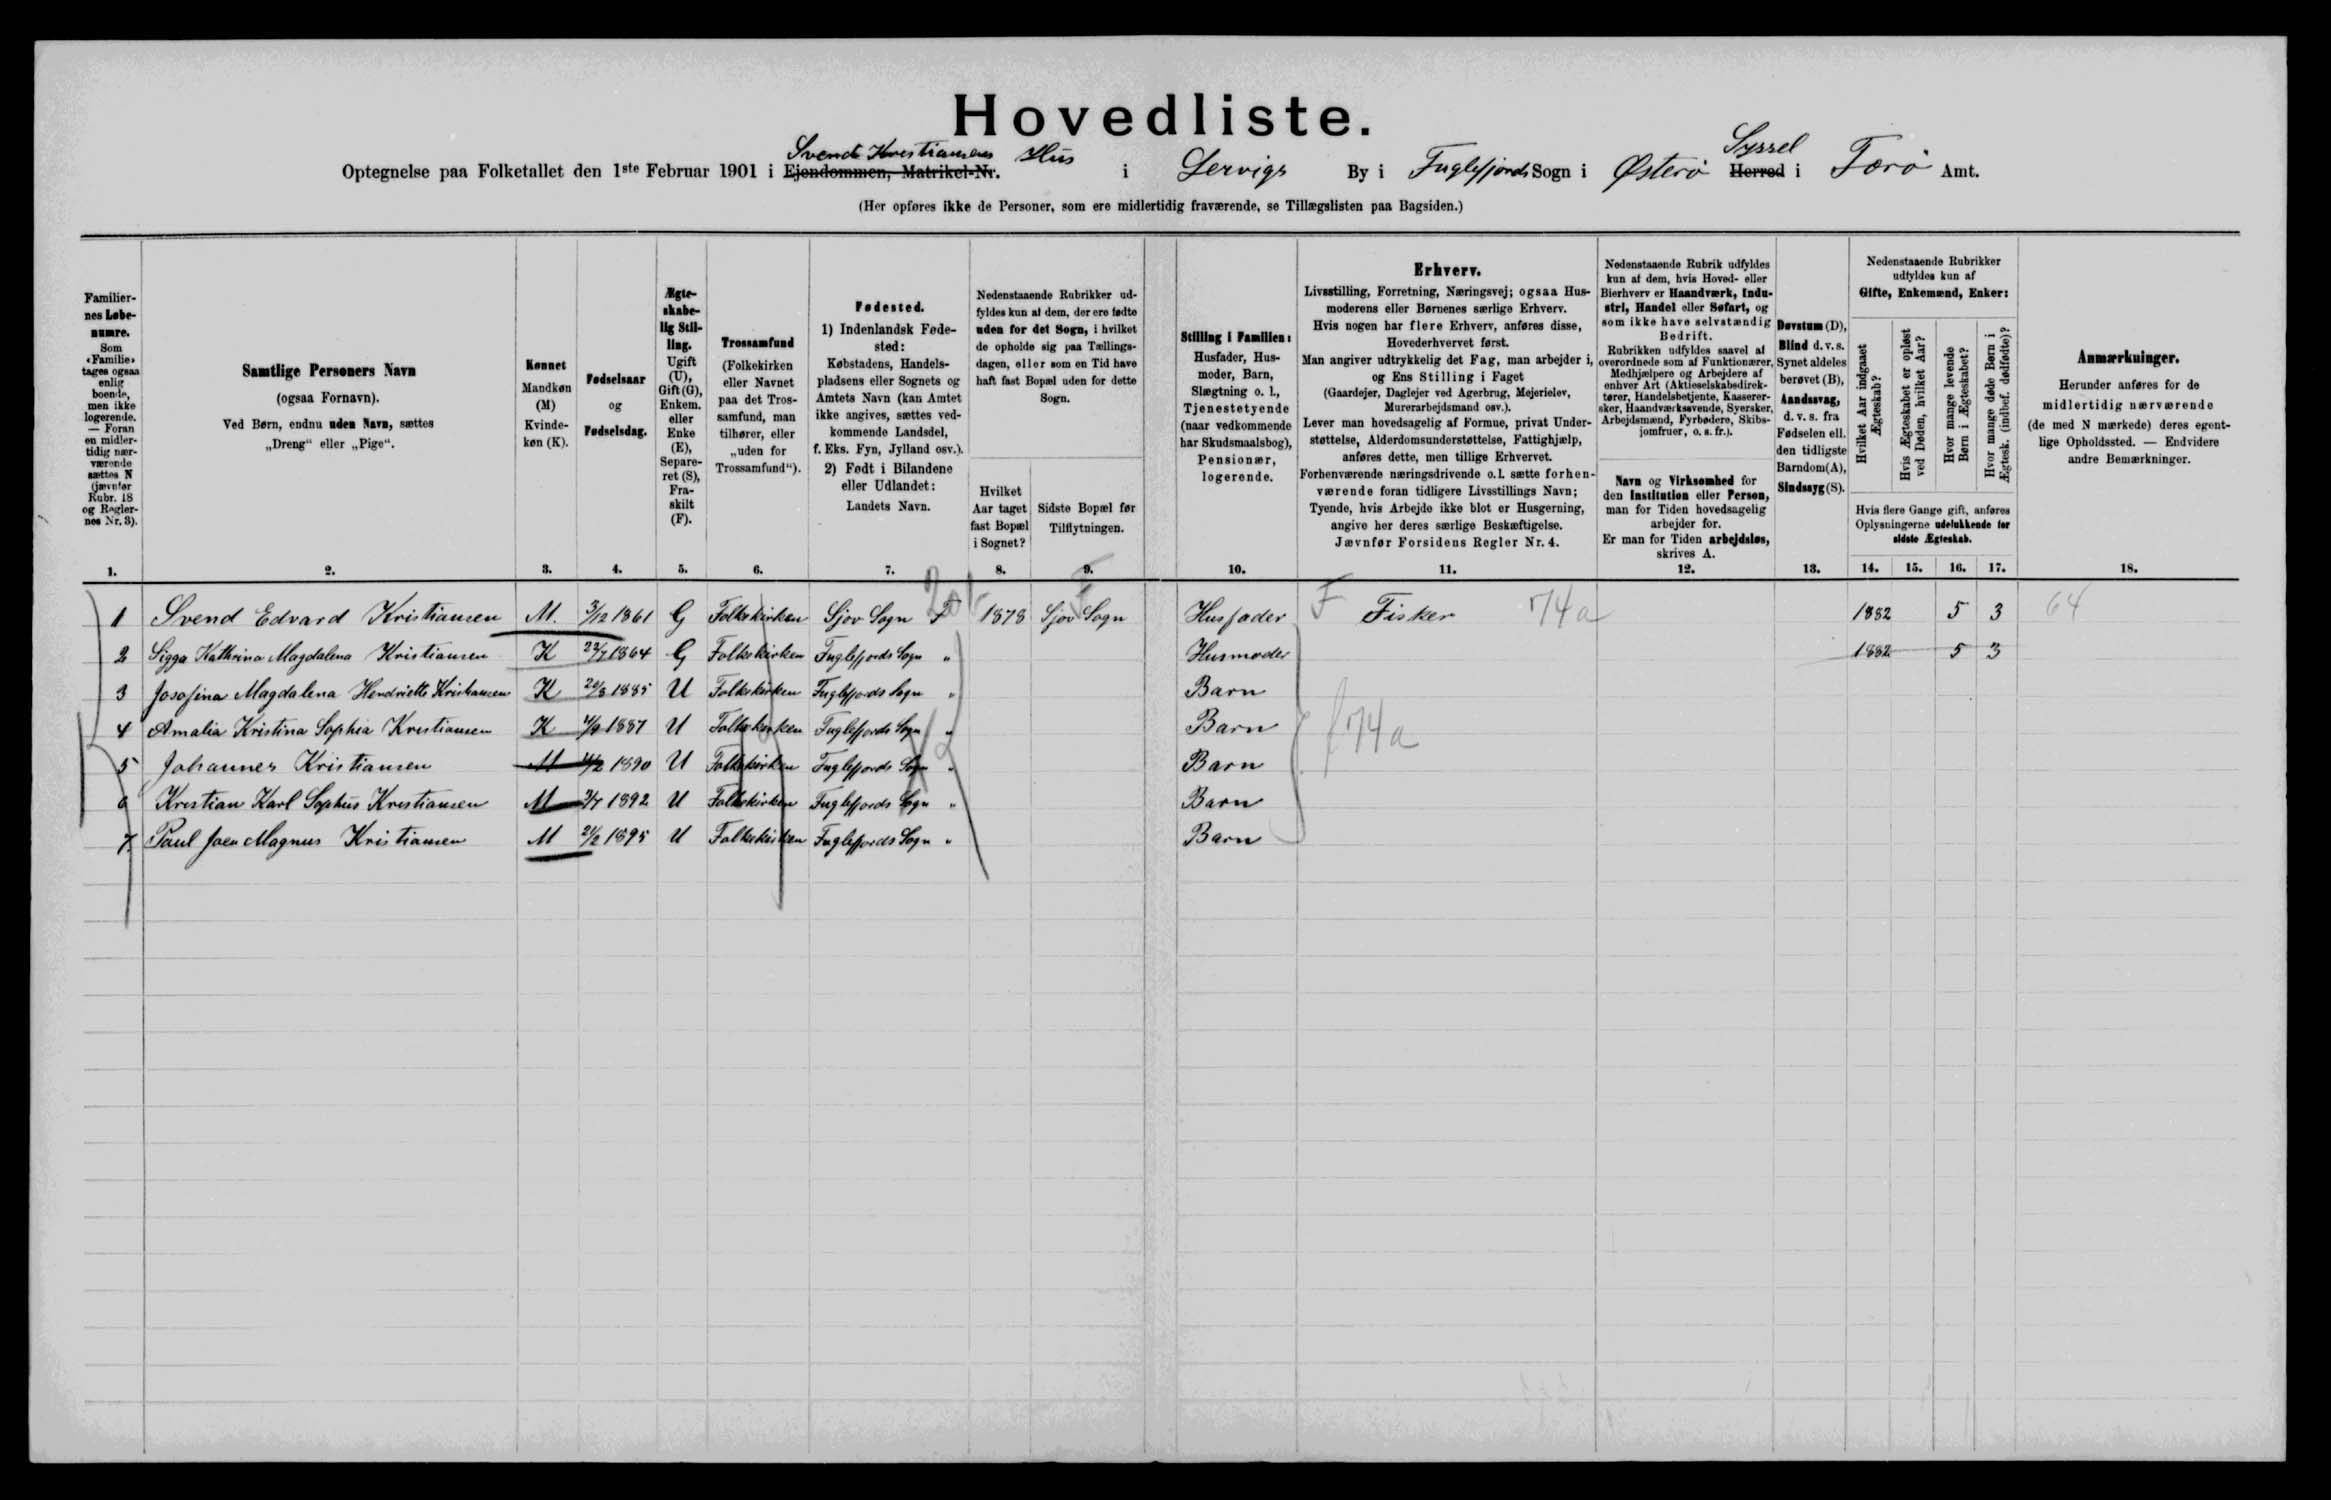 Hovedliste.
Svend Kristiansens Hus Syssel
Optegnelse paa Folketallet den 1ste Februar 1901 i Ejendommen, Matrikel-Nr. i Lervigs By i Fuglefjords Sogn i Østerö Herred i Færö Amt.
(Her opføres ikke de Personer, som ere midlertidig fraværende, se Tillægslisten paa Bagsiden.)
Familier-
nes Løbe-
numre.
Som
«Familie»
tages ogsaa
enlig
boende,
men ikke
logerende.
— Foran
en midler-
tidig nær-
værende
sættes N
(jævnfør
Rubr. 18
og Regler-
nes Nr. 3).
1.
Samtlige Personers Navn
(ogsaa Fornavn).
Ved Børn, endnu uden Navn, sættes
„Dreng“ eller „Pige“.
2.
Kønnet
Mandkøn
(M)
Kvinde-
køn (K).
3.
Fødselsaar
og
Fødselsdag.
4.
Ægte-
skabe-
lig Stil-
ling.
Ugift
(U),
Gift (G),
Enkem.
eller
Enke
(E),
Separe-
ret (S),
Fra-
skilt
(F).
5.
Trossamfund
(Folkekirken
eller Navnet
paa det Tros-
samfund, man
tilhører, eller
„uden for
Trossamfund“).
6.
Fødested.
1) Indenlandsk Føde-
sted:
Købstadens, Handels-
pladsens eller Sognets og
Amtets Navn (kan Amtet
ikke angives, sættes ved-
kommende Landsdel,
f. Eks. Fyn, Jylland osv.).
2) Født i Bilandene
eller Udlandet:
Landets Navn.
7.
Nedenstaaende Rubrikker ud-
fyldes kun af dem, der ere fødte
uden for det Sogn, i hvilket
de opholde sig paa Tællings-
dagen, eller som en Tid have
haft fast Bopæl uden for dette
Sogn.
Hvilket
Aar taget
fast Bopæl
i Sognet?
8.
Sidste Bopæl før
Tilflytningen.
9.
Stilling i Familien:
Husfader, Hus-
moder, Barn,
Slægtning o. l.,
Tjenestetyende
(naar vedkommende
har Skudsmaalsbog),
Pensionær,
logerende.
10.
Erhverv.
Livsstilling, Forretning, Næringsvej; ogsaa Hus-
moderens eller Børnenes særlige Erhverv.
Hvis nogen har flere Erhverv, anføres disse,
Hovederhvervet først.
Man angiver udtrykkelig det Fag, man arbejder i,
og Ens Stilling i Faget
(Gaardejer, Daglejer ved Agerbrug, Mejerielev,
Murerarbejdsmand osv.).
Lever man hovedsagelig af Formue, privat Under-
støttelse, Alderdomsunderstøttelse, Fattighjælp,
anføres dette, men tillige Erhvervet.
Forhenværende næringsdrivende o.l. sætte forhen-
værende foran tidligere Livsstillings Navn;
Tyende, hvis Arbejde ikke blot er Husgerning,
angive her deres særlige Beskæftigelse.
Jævnfør Forsidens Regler Nr. 4.
11.
Nedenstaaende Rubrik udfyldes
kun af dem, hvis Hoved- eller
Bierhverv er Haandværk, Indu-
stri, Handel eller Søfart, og
som ikke have selvstændig
Bedrift.
Rubrikken udfyldes saavel af
overordnede som af Funktionærer,
Medhjælpere og Arbejdere af
enhver Art (Aktieselskabsdirek-
tører, Handelsbetjente, Kasserer-
sker, Haandværkssvende, Syersker,
Arbejdsmænd, Fyrbødere, Skibs-
jomfruer, o. s. fr.).
Navn og Virksomhed for
den Institution eller Person,
man for Tiden hovedsagelig
arbejder for.
Er man for Tiden arbejdsløs,
skrives A.
12.
Døvstum (D),
Blind d. v. s.
Synet aldeles
berøvet (B),
Aandssvag,
d. v. s. fra
Fødselen ell.
den tidligste
Barndom (A),
Sindssyg (S).
13.
Nedenstaaende Rubrikker
udfyldes kun af
Gifte, Enkemænd, Enker:
Hvilket Aar indgaaet
Ægteskab?
Hvis Ægteskabet er opløst
ved Døden, hvilket Aar?
Hvor mange levende
Børn i Ægteskabet?
Hvor mange døde Børn i
Ægtesk. (indbef. dødfødte)?
Hvis flere Gange gift, anføres
Oplysningerne udelukkende for
sidste Ægteskab.
14. 15. 16. 17.
Anmærkninger.
Herunder anføres for de
midlertidig nærværende
(de med N mærkede) deres egent-
lige Opholdssted. — Endvidere
andre Bemærkninger.
18.
1 Svend Edvard Kristiansen M. 3/12 1861 G Folkekirken Sjov Sogn F 1878 Sjov Sogn Husfader F Fisker 174a 1882 5 3 64
2 Sigga Kathrina Magdalena Kristiansen K 22/7 1864 G Folkekirken Fuglefjords Sogn „ Husmoder 1882 5 3
3 Josofina Magdalena Hendriette Kristiansen K 20/8 1885 U Folkekirken Fuglefjords Sogn „ Barn
4 Amalia Kristina Sophia Kristiansen K 4/9 1887 U Folkekirken Fuglefjords Sogn „ Barn f 174a
5 Johannes Kristiansen M 1890 U Folkekirken Fuglefjords Sogn „ Barn
6 Kristian Karl Sophus Kristiansen M 2/7 1892 U Folkekirken Fuglefjords Sogn „ Barn
7. Paul Joen Magnus Kristiansen M 21/2 1895 U Folkekirken Fuglefjords Sogn „ Barn